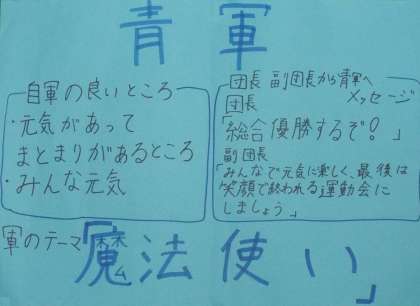 青軍
自軍の良いところ
・元気があって
まとまりがあるところ
・みんな元気
団長 副団長から青軍へ
メッセージ
団長
「総合優勝するぞ!」
副団長
「みんなで元気に楽しく、最後は
笑顔で終われる運動会に
しましょう」
軍のテーマ「魔法使い」